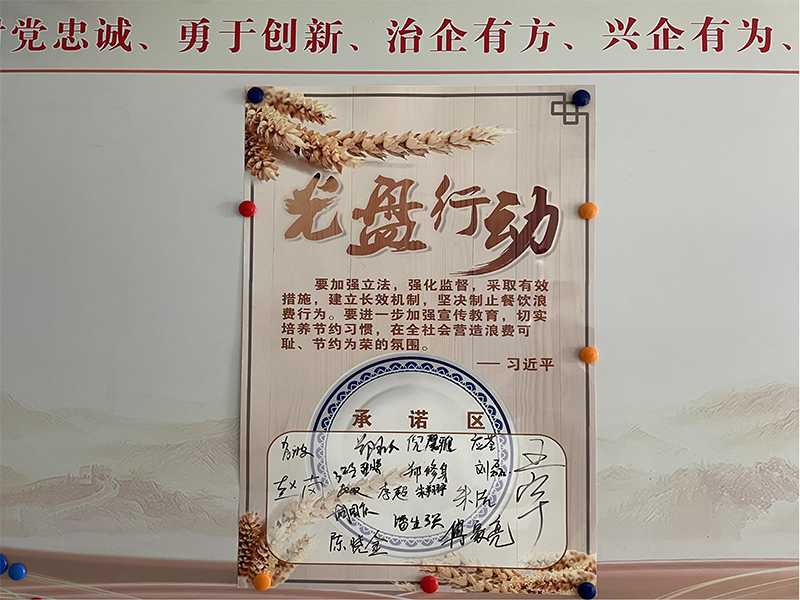 党忠诚、勇于创新、治企有方、兴企有为、
光盘行动
要加强立法，强化监督，采取有效
措施，建立长效机制，坚决制止餐饮浪
费行为。要进一步加强宣传教育，切实
培养节约习惯，在全社会营造浪费可
耻、节约为荣的氛围。
—— 习近平
承诺区
郑修身 刘磊
李超 朱
陈晓金